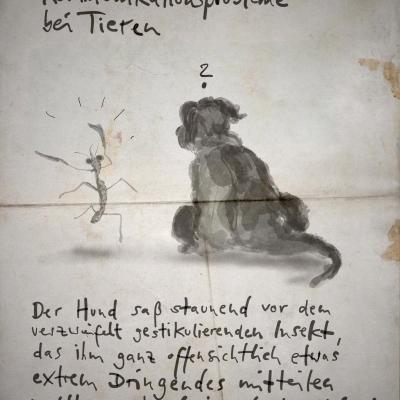 Kommunikationsprobleme
bei Tieren
?
Der Hund saß staunend vor dem
verzweifelt gestikulierenden Insekt,
das ihm ganz offensichtlich etwas
extrem Dringendes mitteilen